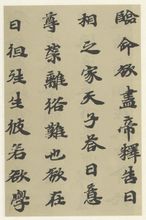 臨命欲盡帝釋告曰
相之家天子答曰豪
尊禁離俗難也欲在
日徂殞生彼若欲學